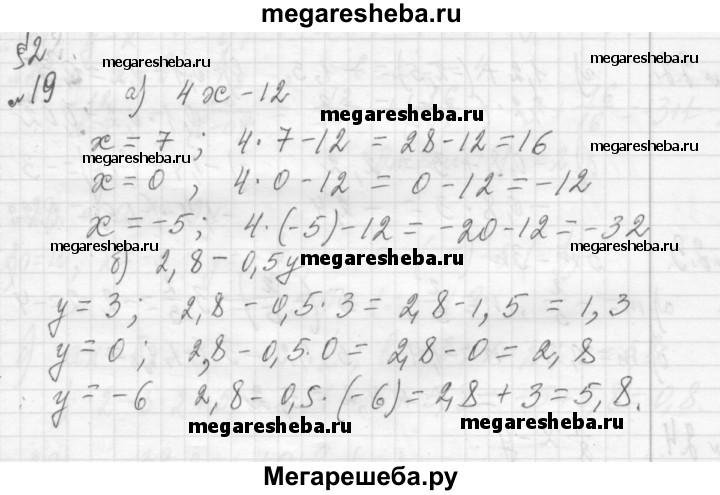 megaresheba.ru
§2
№19 а) 4x - 12
megaresheba.ru megaresheba.ru
megaresheba.ru
x = 7 ; 4·7 - 12 = 28 - 12 = 16
megaresheba.ru
x = 0 , 4·0 - 12 = 0 - 12 = -12
megaresheba.ru
x = -5; 4·(-5) - 12 = -20 - 12 = -32
megaresheba.ru megaresheba.ru
б) 2,8 - 0,5y
megaresheba.ru
y = 3 ; 2,8 - 0,5·3 = 2,8 - 1,5 = 1,3
y = 0 ; 2,8 - 0,5·0 = 2,8 - 0 = 2,8
megaresheba.ru megaresheba.ru
y = -6 2,8 - 0,5·(-6) = 2,8 + 3 = 5,8.
megaresheba.ru megaresheba.ru
Мегарешеба.ру